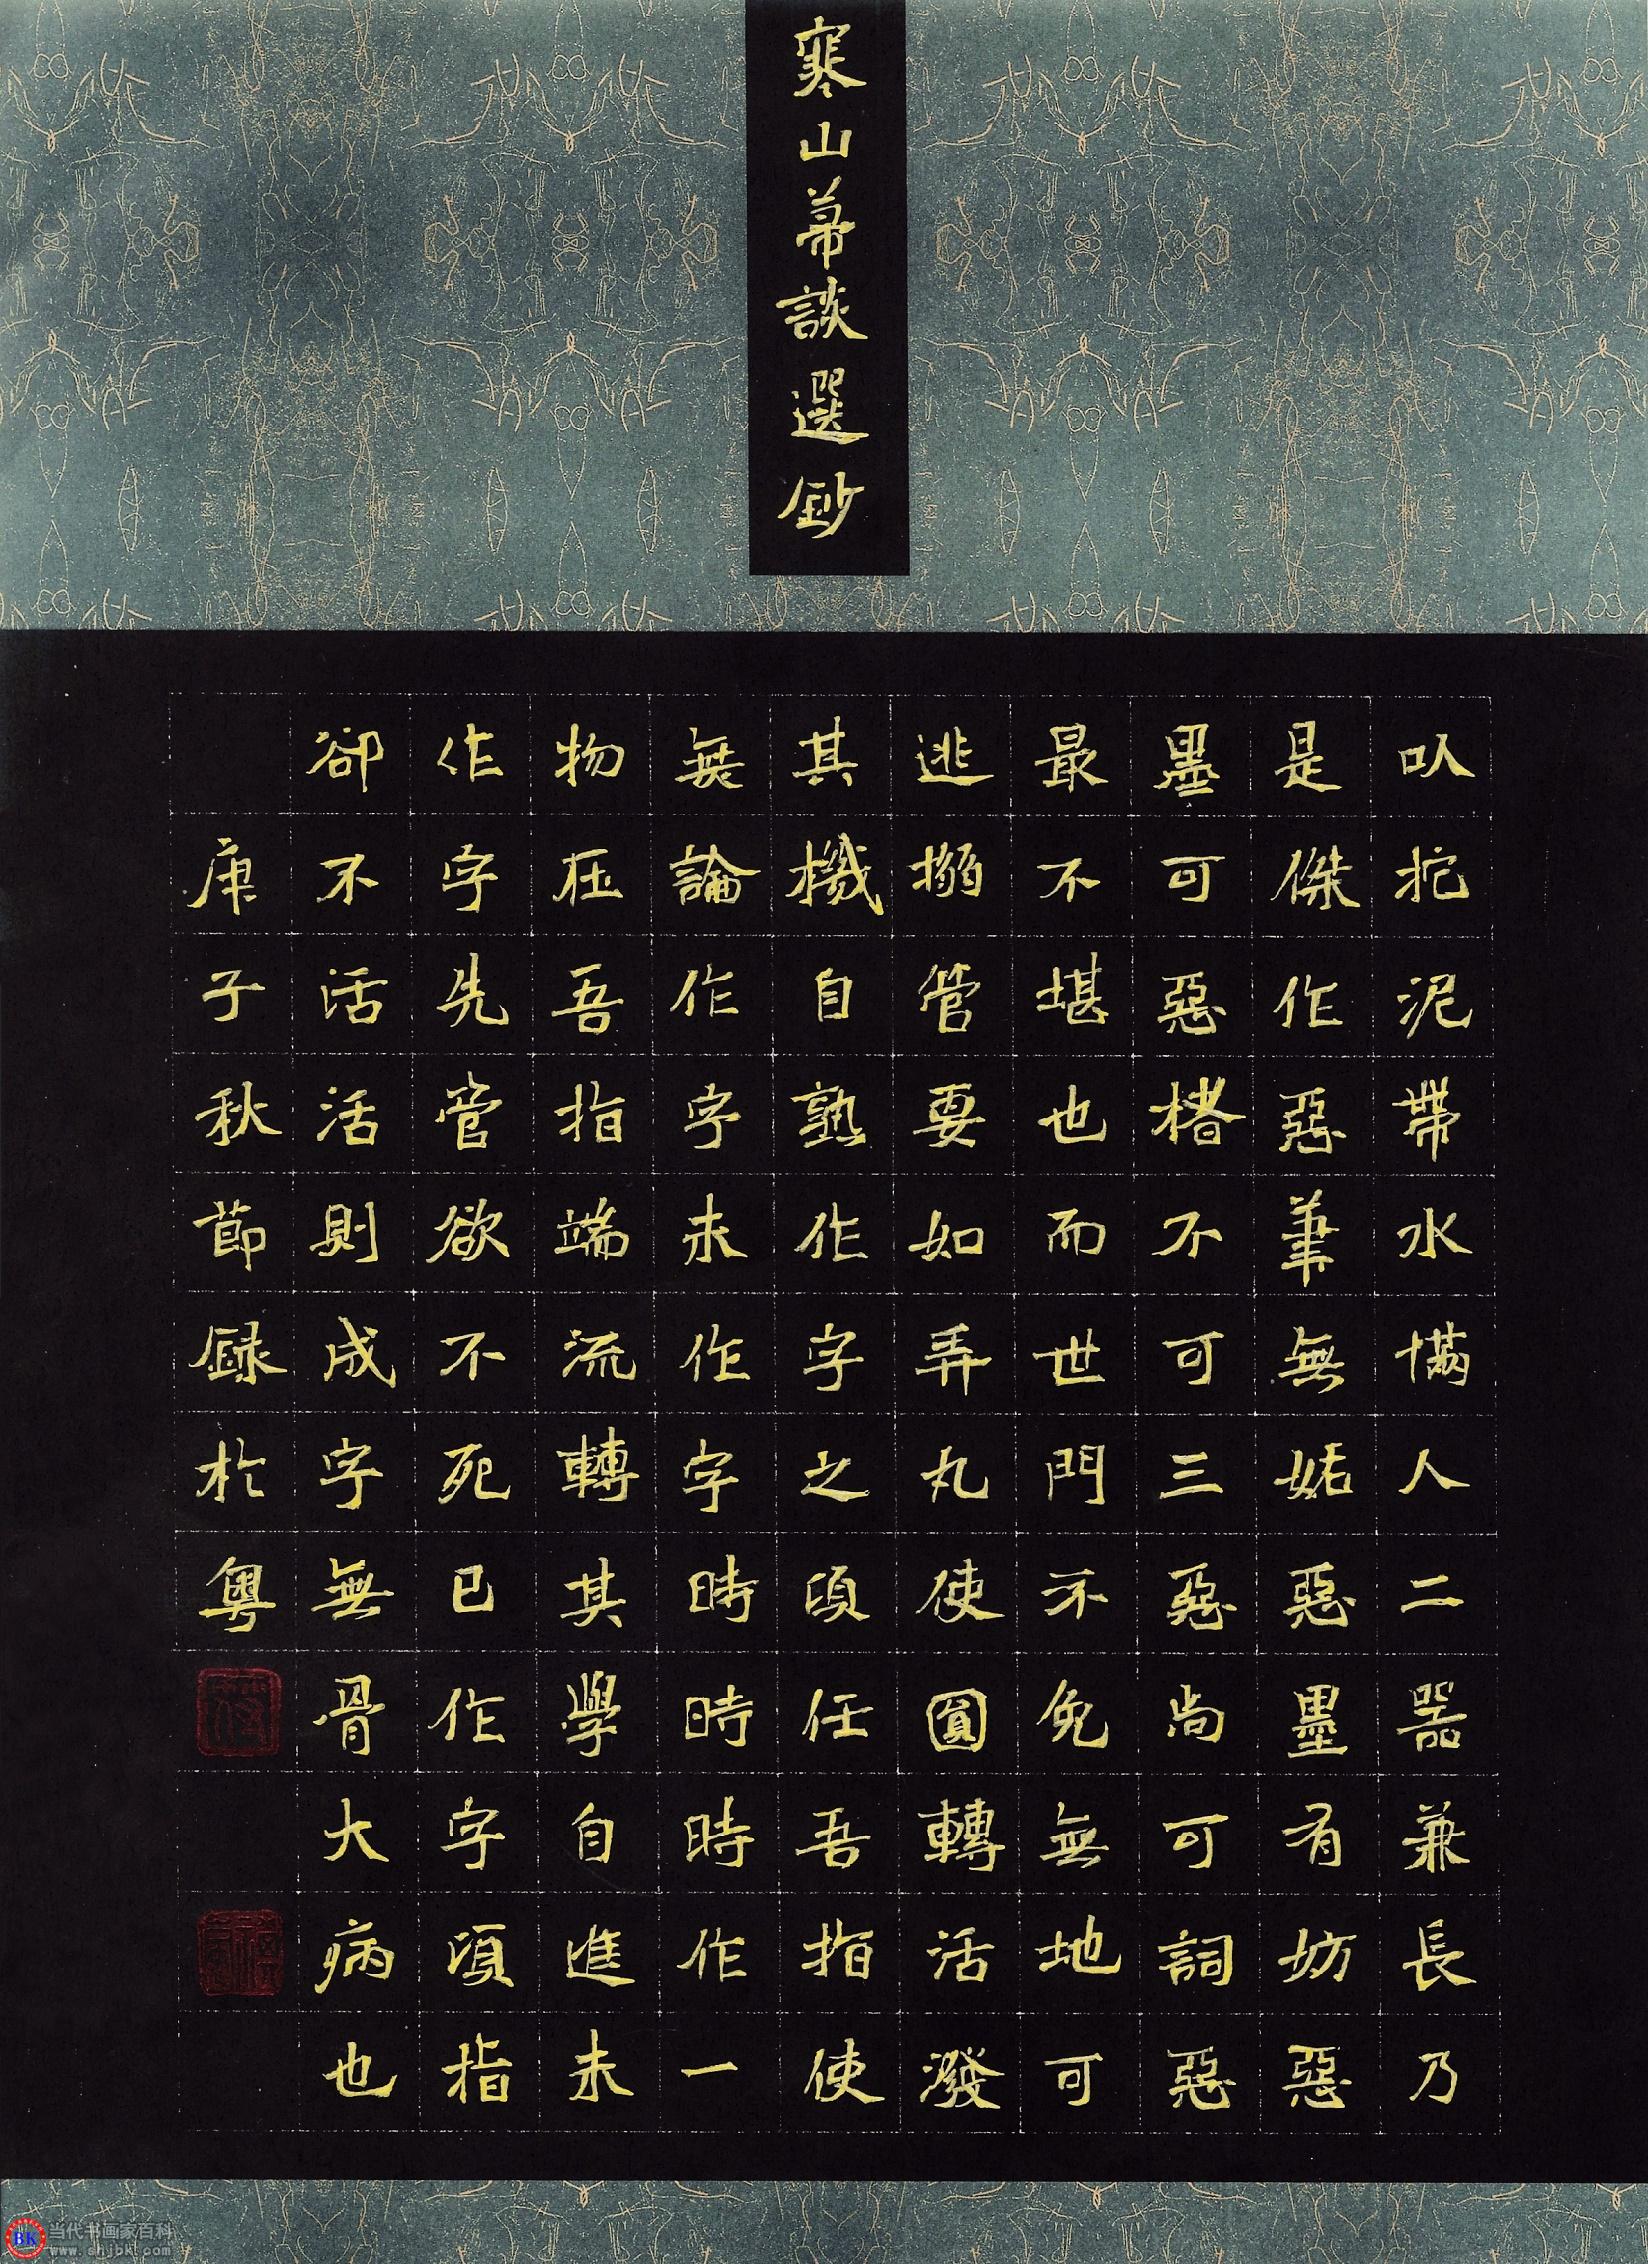 寒山帚談選鈔
以拕泥帶水懣人二器兼長乃
是傑作惡筆無妨惡墨有妨惡
墨可惡楮不可三惡尚可詞惡
最不堪也而世門不免無地可
逃搦管要如弄丸使圓轉活潑
其機自熟作字之頃任吾指使
無論作字未作字時時時作一
物在吾指端流轉其學自進未
作字先管欲不死已作字頃指
卻不活活則成字無骨大病也
庚子秋節録於粵
当代书画家百科
www.shjbkt.com
BK